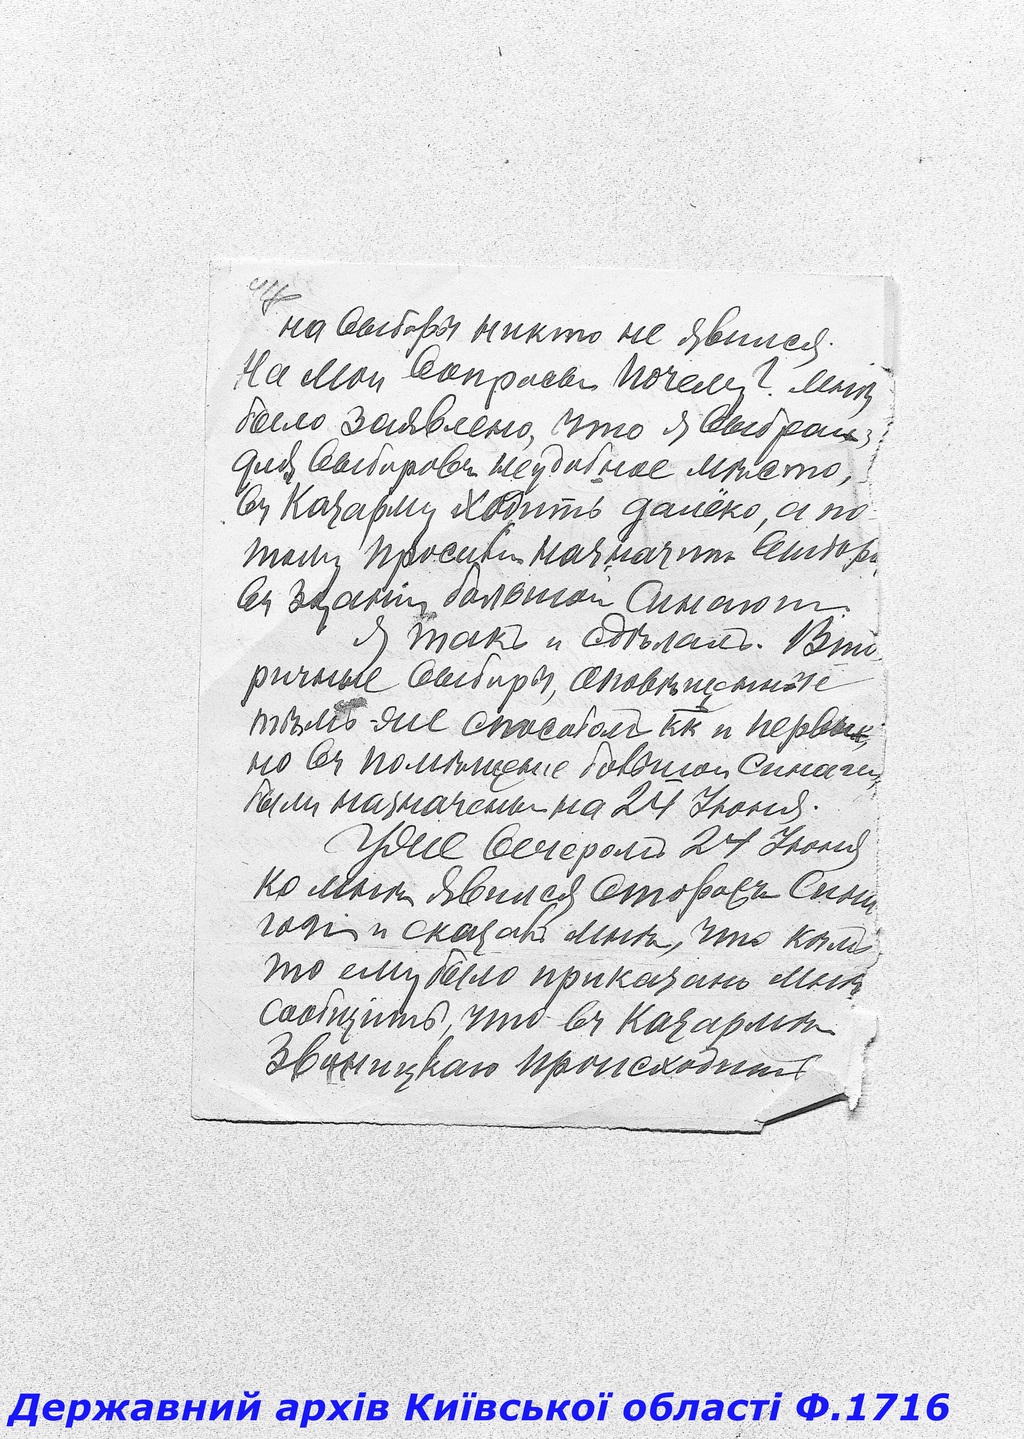 на выборы никто не явился.
На мои вопросы почему? мнѣ
было заявлено, что я выбралъ
для выборовъ неудобное мѣсто,
въ Казарму ходить далёко, а по
тому просивъ назначить выборы
въ зданіи большой Синагоги.
Я такъ и сдѣлалъ. Вто
ричные выборы, оповѣщенные
тѣмъ-же способомъ кк и первые,
но въ помѣщеніе большой синагоги,
были назначены на 24 Іюня.
Уже вечеромъ 24 Іюня
ко мнѣ явился сторожъ Сина
гоги и сказавъ мнѣ, что кѣмъ
то ему было приказано мнѣ
сообщить, что въ Казармѣ
происходитъ
Державний архів Київської області Ф.1716